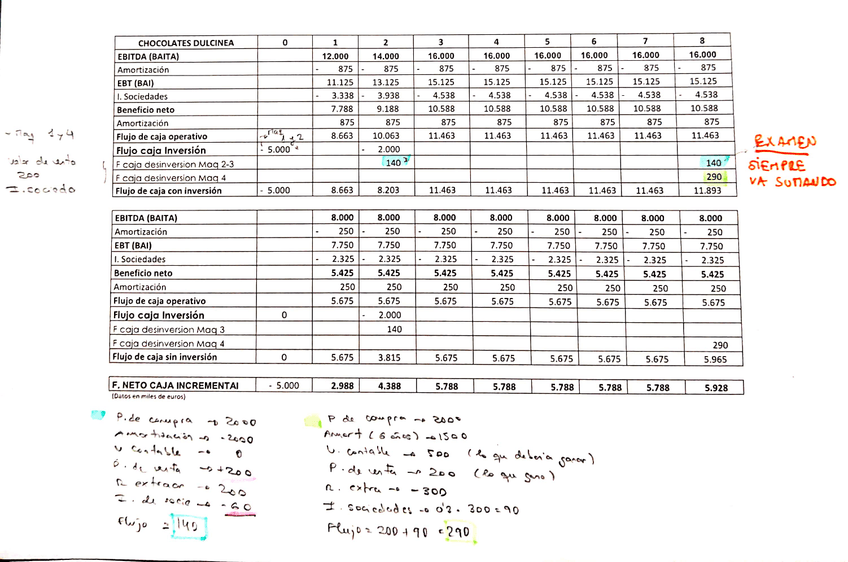 CHOCOLATES DULCINEA 0 1 2 3 4 5 6 7 8
EBITDA (BAITA) 12.000 14.000 16.000 16.000 16.000 16.000 16.000 16.000
Amortización - 875 - 875 - 875 - 875 - 875 - 875 - 875 - 875
EBT (BAI) 11.125 13.125 15.125 15.125 15.125 15.125 15.125 15.125
I. Sociedades - 3.338 - 3.938 - 4.538 - 4.538 - 4.538 - 4.538 - 4.538 - 4.538
Beneficio neto 7.788 9.188 10.588 10.588 10.588 10.588 10.588 10.588
Amortización 875 875 875 875 875 875 875 875
Flujo de caja operativo 8.663 10.063 11.463 11.463 11.463 11.463 11.463 11.463
Flujo caja Inversión - 5.000 - 2.000
F caja desinversion Maq 2-3 140 140
F caja desinversion Maq 4 290
Flujo de caja con inversión - 5.000 8.663 8.203 11.463 11.463 11.463 11.463 11.463 11.893
- Maq 1 y 4
Valor de venta
200
I. socieda
EXAMEN
SIEMPRE
VA SUMANDO
EBITDA (BAITA) 8.000 8.000 8.000 8.000 8.000 8.000 8.000 8.000
Amortización - 250 - 250 - 250 - 250 - 250 - 250 - 250 - 250
EBT (BAI) 7.750 7.750 7.750 7.750 7.750 7.750 7.750 7.750
I. Sociedades - 2.325 - 2.325 - 2.325 - 2.325 - 2.325 - 2.325 - 2.325 - 2.325
Beneficio neto 5.425 5.425 5.425 5.425 5.425 5.425 5.425 5.425
Amortización 250 250 250 250 250 250 250 250
Flujo de caja operativo 5.675 5.675 5.675 5.675 5.675 5.675 5.675 5.675
Flujo caja Inversión 0 - 2.000
F caja desinversion Maq 3 140
F caja desinversion Maq 4 290
Flujo de caja sin inversión 0 5.675 3.815 5.675 5.675 5.675 5.675 5.675 5.965
F. NETO CAJA INCREMENTAl - 5.000 2.988 4.388 5.788 5.788 5.788 5.788 5.788 5.928
(Datos en miles de euros)
P. de compra → 2000
Amortización → -2000
V contable → 0
P. de venta → +200
R extraor → 200
I. de socie → -60
Flujo = 140
P de compra → 2000
Amort (6 años) → 1500
V. contable → 500 (lo que debería ganar)
P. de venta → 200 (lo que gano)
R. extra → -300
I. sociedades → 0'3 · 300 = 90
Flujo = 200 + 90 = 290